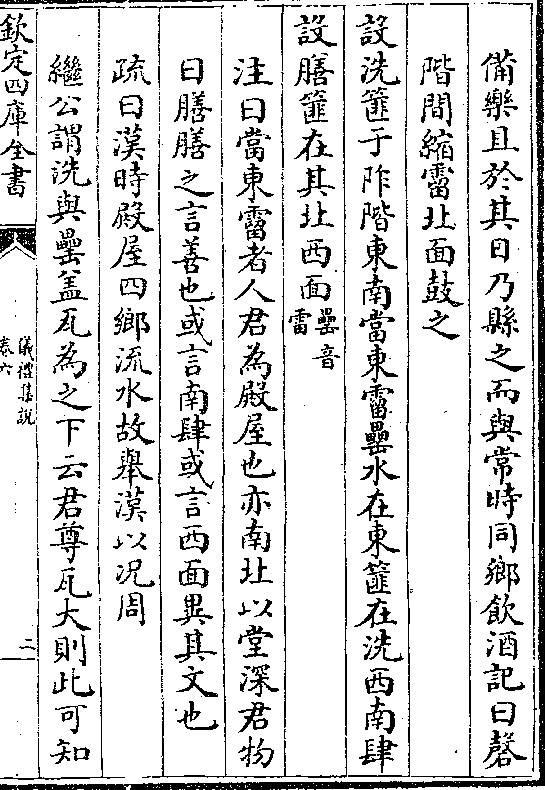 備樂且於其日乃縣之而與常時同鄉飲酒記曰磬
階間縮霤北面鼓之
設洗篚于阼階東南當東霤罍水在東篚在洗西南肆
設膳篚在其北西面罍音
雷
注曰當東霤者人君為殿屋也亦南北以堂深君物
曰膳膳之言善也或言南肆或言西面異其文也
疏曰漢時殿屋四鄉流水故舉漢以况周
繼公謂洗與罍盖瓦為之下云君尊瓦大則此可知
欽定四庫全書
儀禮集說
卷六
二